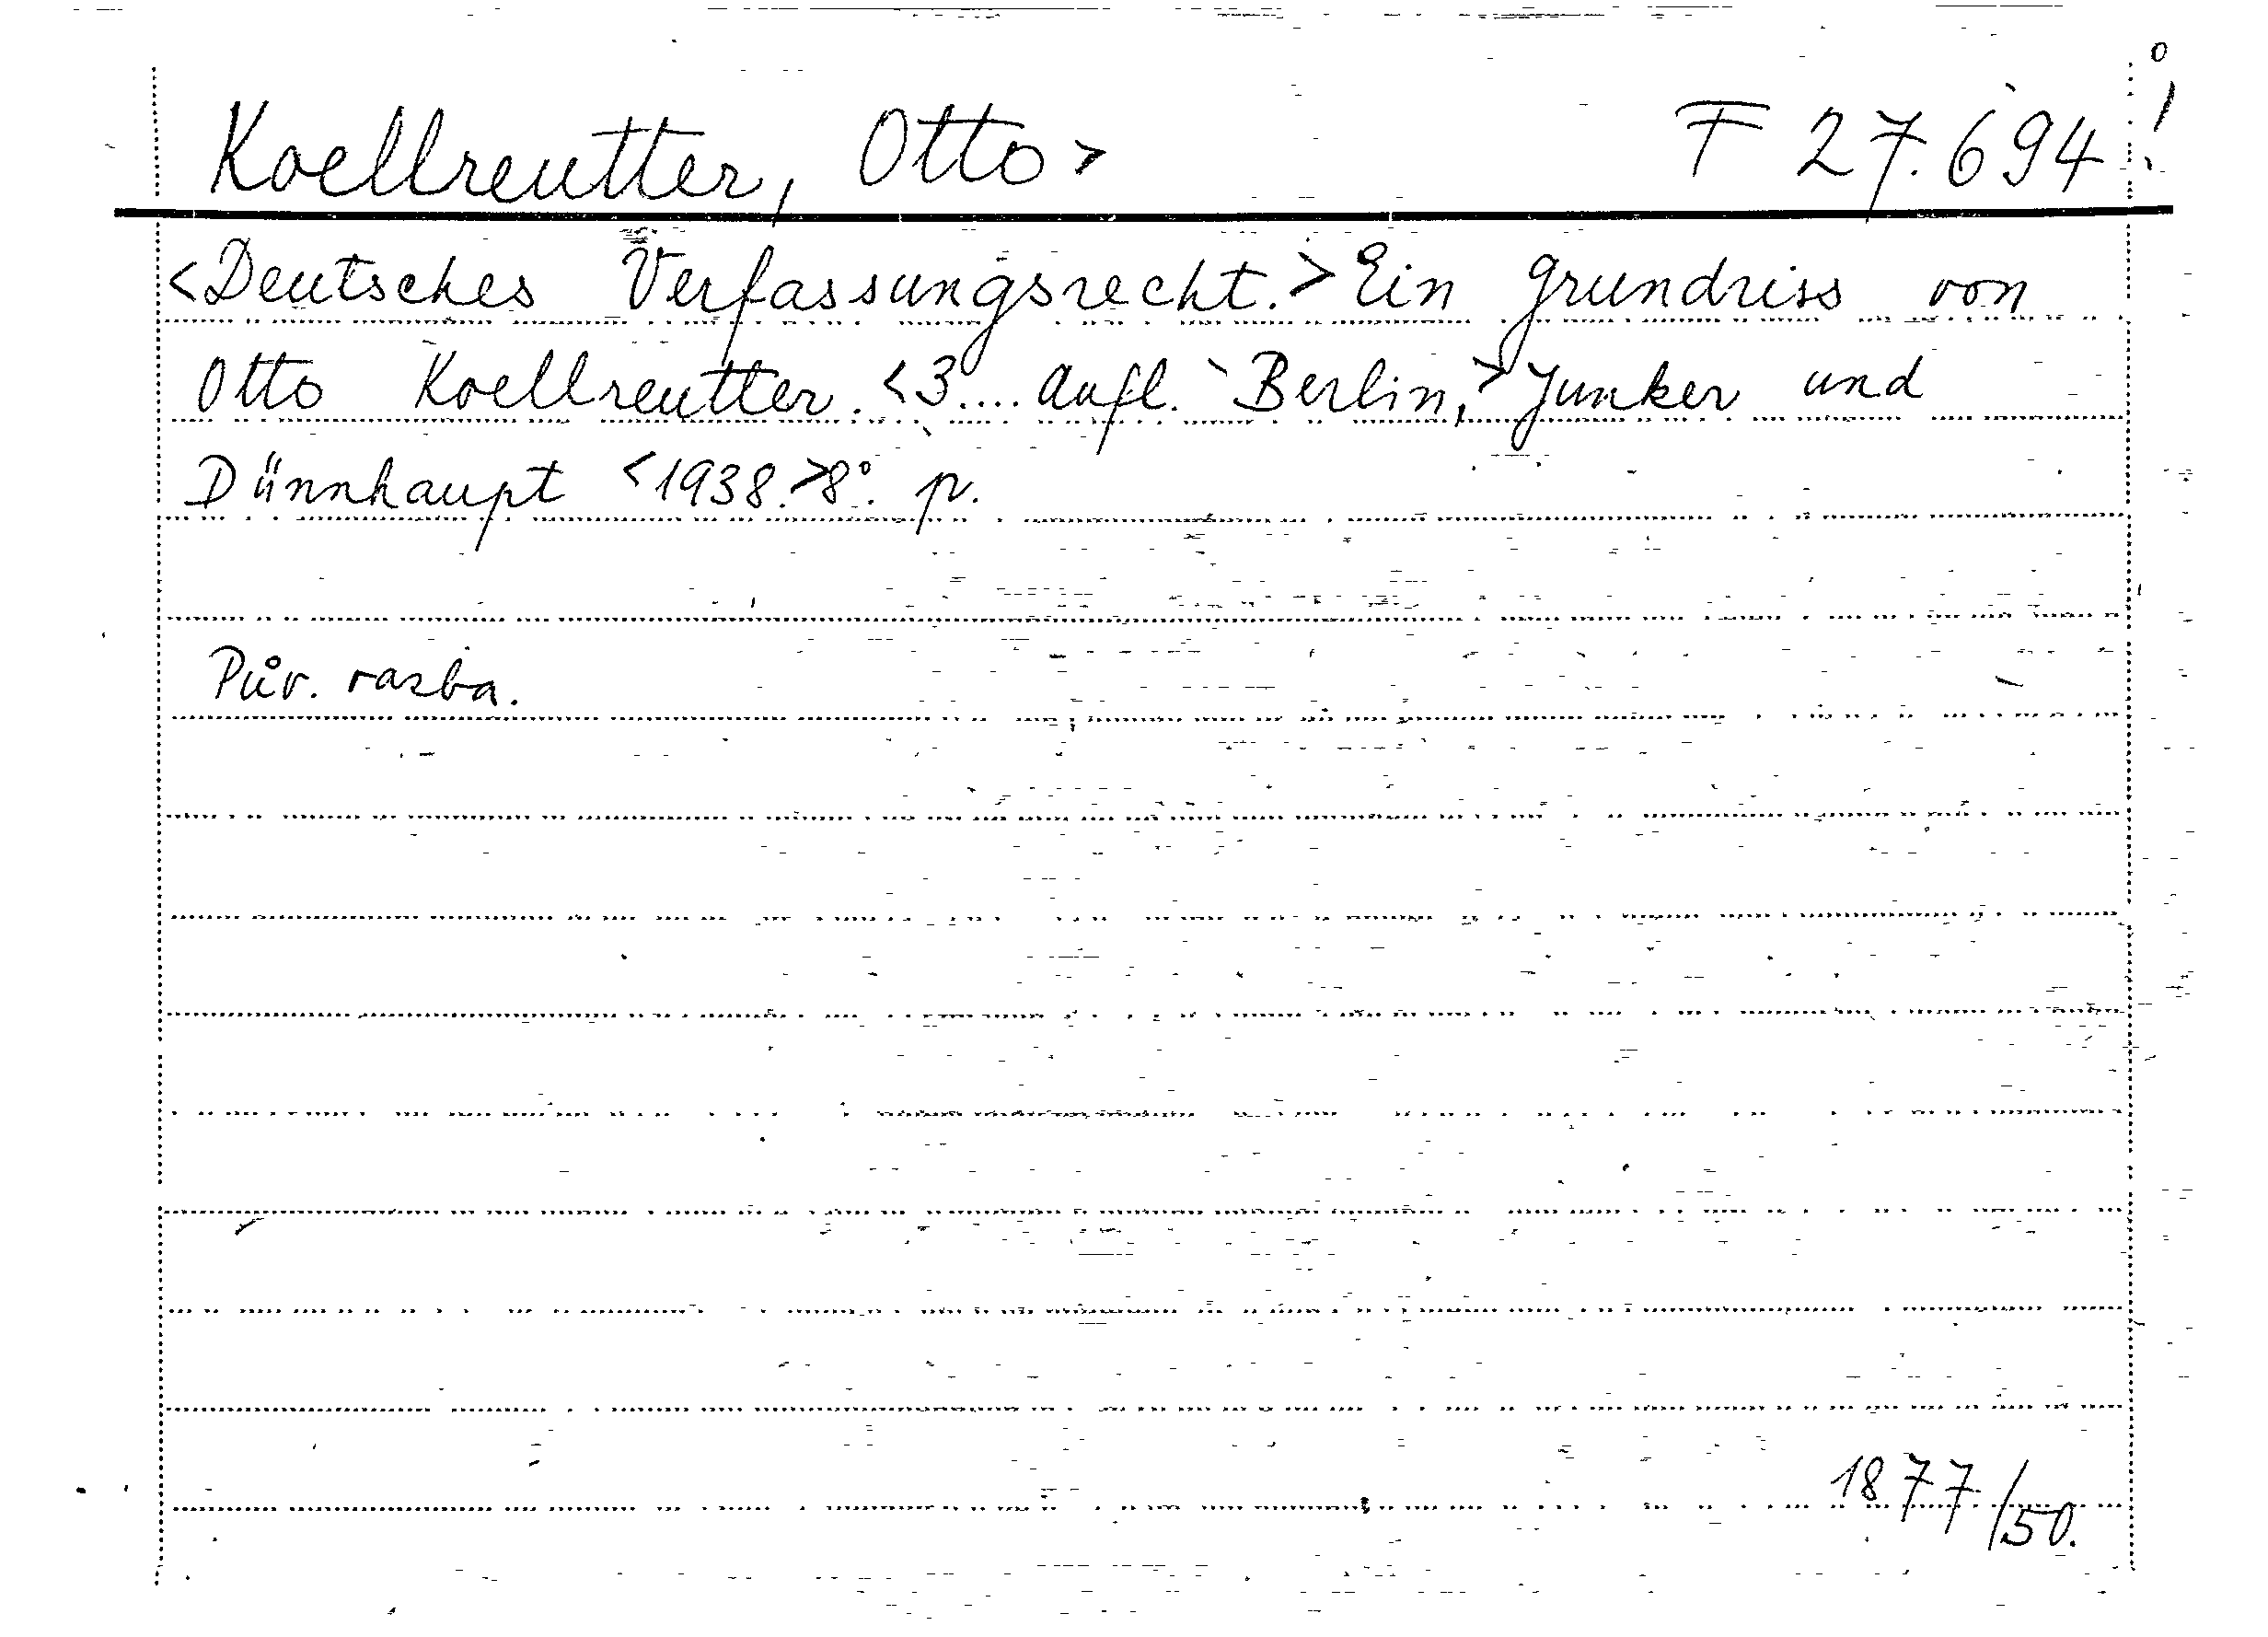 Koellreutter, Otto> F 27.694!
<Deutsches Verfassungsrecht.> Ein Grundriss von
Otto Koellreutter. <3.... Aufl. Berlin,> Junker und
Dünnhaupt <1938.> 8°. p.
Pův. vazba.
1877/50.